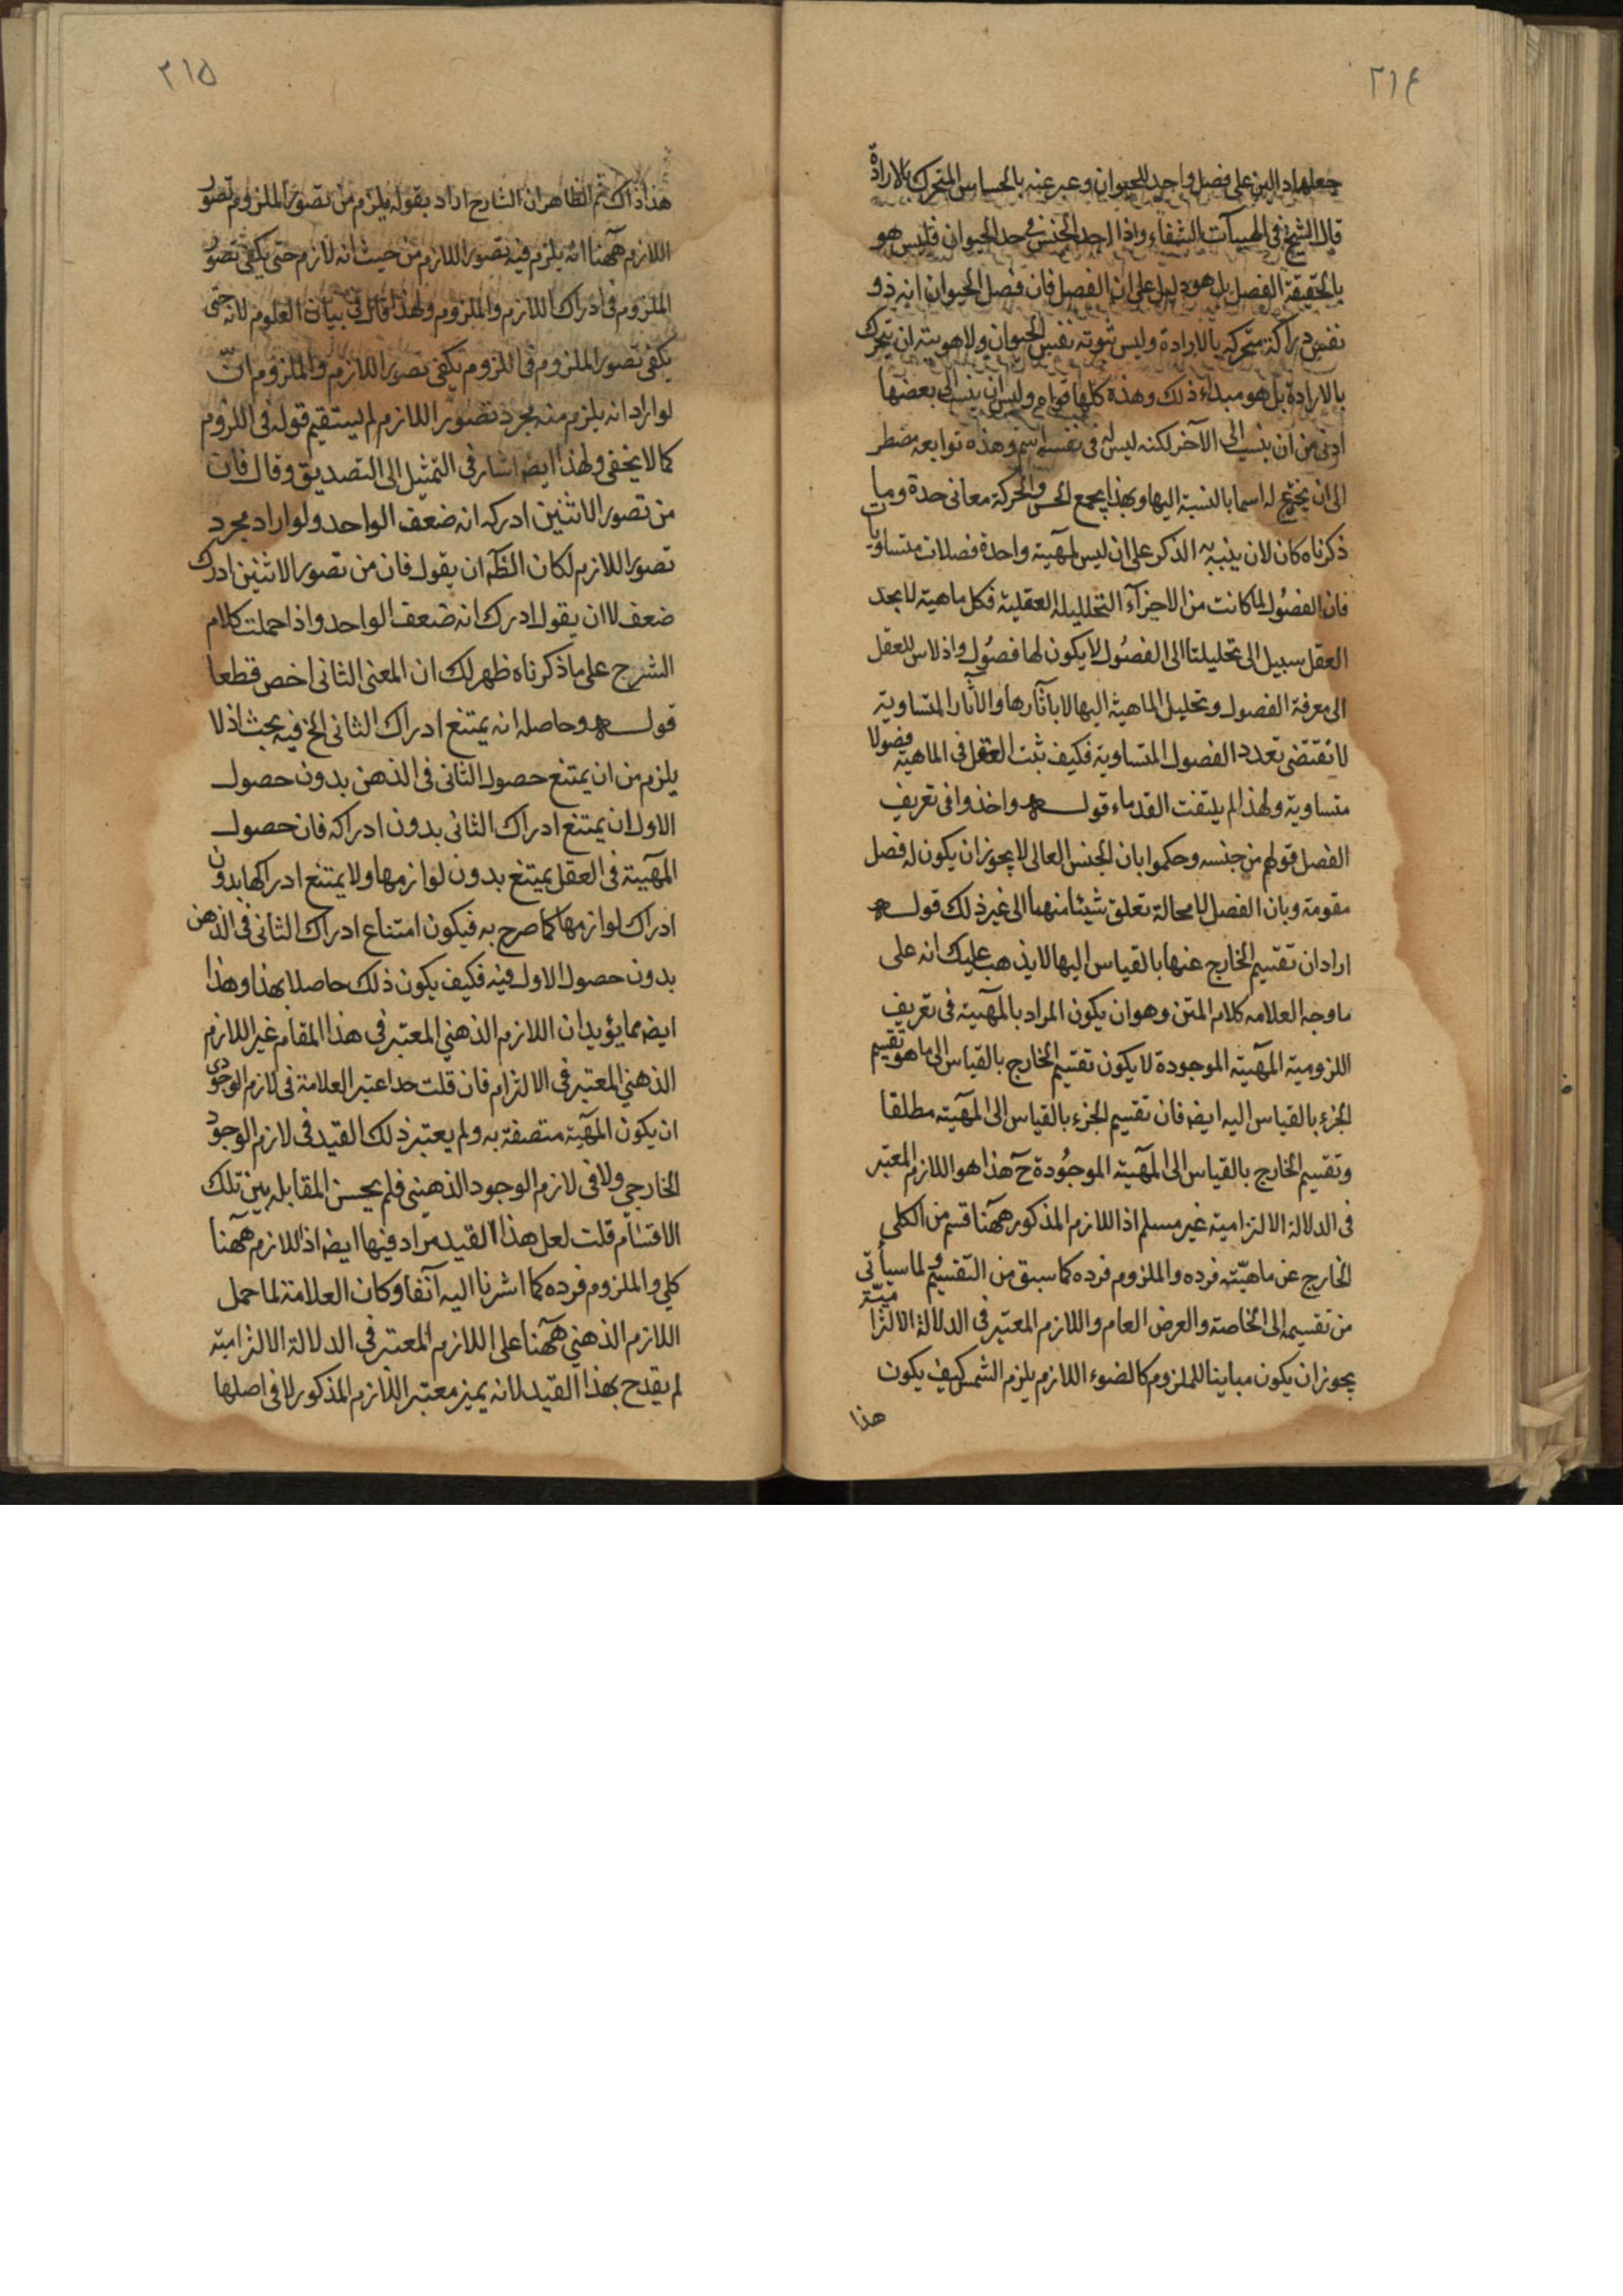 ٢١٤
جعلها دالين على فصل واحد للحيوان وعبر عنه بالحساس المتحرك بالارادة
قال الشيخ فى الهيات الشفاء واذا احد الجنس فى حد الحيوان فليس هو
بالحقيقة الفصل بل هو دليل على ان الفصل فان فصل الحيوان انه ذو
نفس دراكة متحركة بالارادة وليس نفس الحيوان ولا هويته ان يتحرك
بالارادة بل هو مبداء ذلك وهذه كلها قواه وليس ان ينسب الى بعضها
ادنى من ان ينسب الى الآخر لكنه ليس له فى نفسه اسم وهذه توابعه مضطر
الى ان يخترع له اسما بالنسبة اليها وبهذا يجمع الحس والحركة معانى حدة وما
ذكرناه كان لان ينبه به الذكر على ان ليس لمهية واحدة فصلان متساويان
فان الفصول لما كانت من الاجزآء التحليلية العقلية فكل ماهية لا يجد
العقل سبيل الى تحليلتا الى الفصول لا يكون لها فصول واذ لاس للعقل
الى معرفة الفصول وتحليل الماهية اليها الا بآثارها والآثار المتساوية
لا تقتضى تعدد الفصول المتساوية فكيف يثبت العقل فى الماهية فصولا
متساوية ولهذا لم يلتفت القدماء قوله واخذوا فى تعريف
الفصل قولهم من جنسه وحكموا بان الجنس العالى لا يجوز ان يكون له فصل
مقومة وبان الفصل لا محالة تعلق شيئا منهما الى غير ذلك قوله
اراد ان تقسيم الخارج عنها بالقياس اليها لا يذهب عليك انه على
ما وجه العلامه كلام المتن وهو ان يكون المراد بالمهية فى تعريف
اللزومية المهية الموجودة لا يكون تقسيم الخارج بالقياس الى ما هو تقسيم
الجزء بالقياس اليه ايضه فان تقسيم الجزء بالقياس الى المهية مطلقا
وتقسيم الخارج بالقياس الى المهية الموجودة ح هذا هو اللازم المعتبر
فى الدلالة الالتزامية غير مسلم اذ اللازم المذكور ههنا قسم من الكلى
الخارج عن ماهيّة فرده والملزوم فرده كما سبق من التقسيم ولما سيأتى
من تقسيمه الى الخاصة والعرض العام واللازم المعتبر فى الدلالة الالتزامية
يجوز ان يكون مباينا للملزوم كالضوء اللازم يلزم الشمس كيف يكون
هذا
٢١٥
هذا ذاك ثم الظاهر ان الشارح اراد بقوله يلزم من تصور الملزوم تصور
اللازم ههنا انه يلزم فيه تصور اللازم من حيث انه لازم حتى يكفى تصور
الملزوم فى ادراك اللازم والملزوم ولهذا قال فى بيان العلوم لانه حتى
يكفى تصور الملزوم فى اللزوم يكفى تصور اللازم والملزوم اذ
لو اراد انه يلزم منه مجرد تصور اللازم لم يستقيم قوله فى اللزوم
كما لا يخفى ولهذا ايضه اشار فى التمثيل الى التصديق وقال فان
من تصور الاثنين ادركه انه ضعف الواحد ولو اراد مجرد
تصور اللازم لكان الظه ان يقول فان من تصور الاثنين ادرك
ضعف لا ان يقول ادرك انه ضعف الواحد واذا حملت كلام
الشرح على ما ذكرناه ظهر لك ان المعنى الثانى اخص قطعا
قوله وحاصله انه يمتنع ادراك الثانى الخ فيه بحث اذ لا
يلزم من ان يمتنع حصول الثانى فى الذهن بدون حصول
الاول ان يمتنع ادراك الثانى بدون ادراكه فان حصول
المهية فى العقل يمتنع بدون لوازمها ولا يمتنع ادراكها بدون
ادراك لوازمها كما صرح به فيكون امتناع ادراك الثانى فى الذهن
بدون حصول الاول فيه فكيف يكون ذلك حاصلا بهذا وهذا
ايضه مما يؤيد ان اللازم الذهنى المعتبر فى هذا المقام غير اللازم
الذهنى المعتبر فى الالتزام فان قلت حدا عتبر العلامة فى لازم الوجودى
ان يكون المهية متصفة به ولم يعتبر ذلك القيد فى لازم الوجود
الخارجي ولا فى لازم الوجود الذهنى فلم يحسن المقابله بين تلك
الاقسام قلت لعل هذا القيد مراد فيها ايضه اذ اللازم ههنا
كلي والملزوم فرده كما اشرنا اليه آنفا وكان العلامة لما حمل
اللازم الذهني ههنا على اللازم المعتبر فى الدلالة الالتزامية
لم يقدح بهذا القيد لانه يميز معتبر اللازم المذكور لا فى اصلها